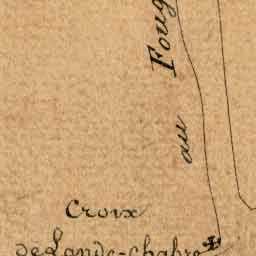 au Foug
Croix
de Lande-chabre